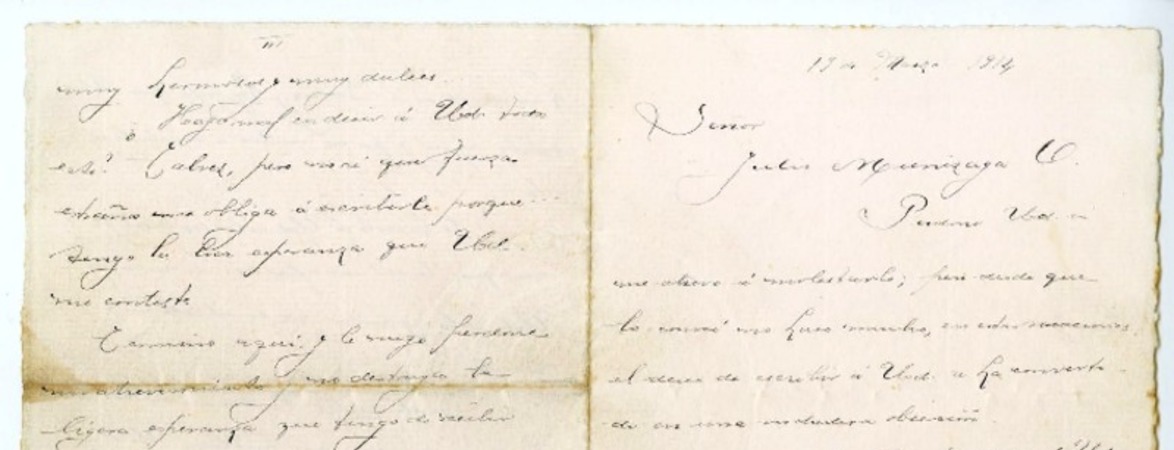 III
muy hermosas y muy dulces.
Hago mal en decir á Ud. todo
esto? Talvez, pero no sé que fuerza
estraña me obliga á escribirle porque...
tengo la esperanza que Ud.
me conteste
Termino aquí y le ruego perdone
mi atrevimiento y no destruya la
ligera esperanza que tengo de recibir
13 de Marzo 1914
Señor
Julio Munizaga O.
Perdone Ud. si
me atrevo á molestarlo; pero desde que
lo conocí no hace mucho, en
el deseo de escribir á Ud. se ha converti-
do en una verdadera obsesión.